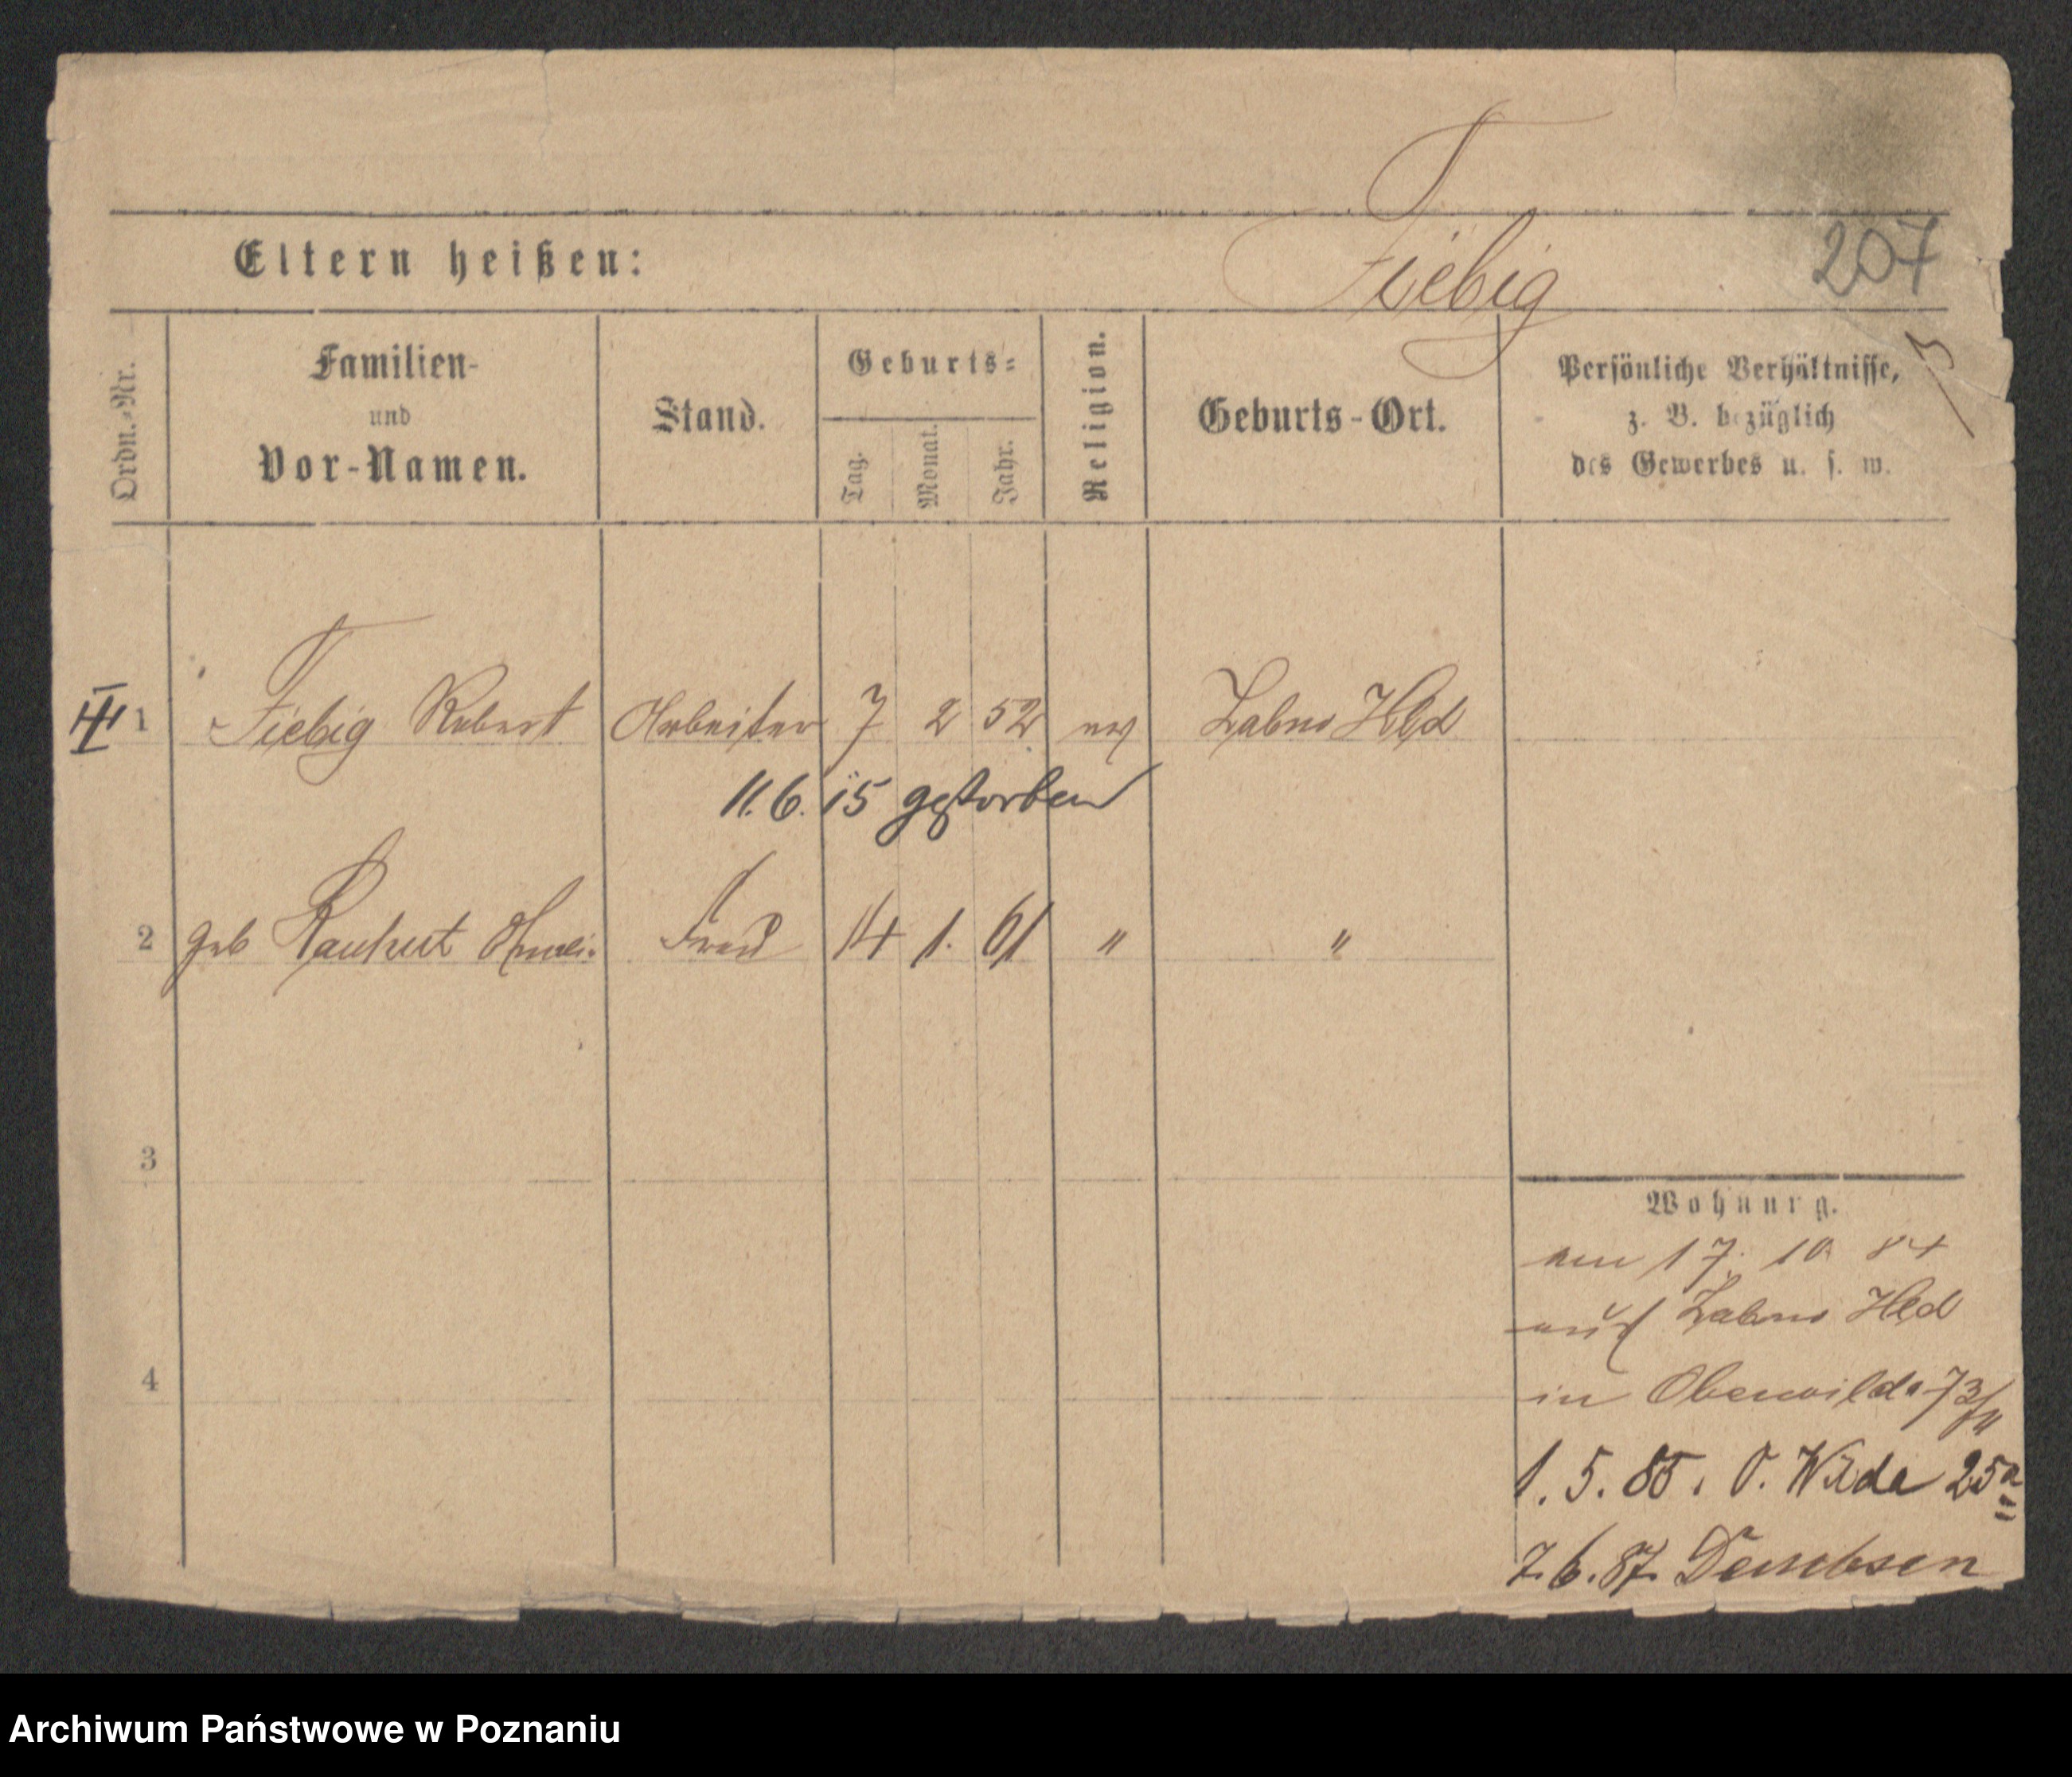 Fiebig
207
Eltern heißen:
Ordn.-Nr. Familien- und Vor-Namen. Stand. Geburts= Tag. Monat. Jahr. Religion. Geburts-Ort. Persönliche Verhältnisse, z. B. bezüglich des Gewerbes u. s. w.
III 1 Fiebig Robert Arbeiter 7 2 52 ev Labno Hld
11.6.15 gestorben
2 geb Frau 14 1. 61 " "
3
Wohnung.
am 17. 10. 84
aus Labno Hld
in Oberwilda 73/
4
1. 5. 85. O. Wilda 25a
7.6.87. Dembsen
Archiwum Państwowe w Poznaniu